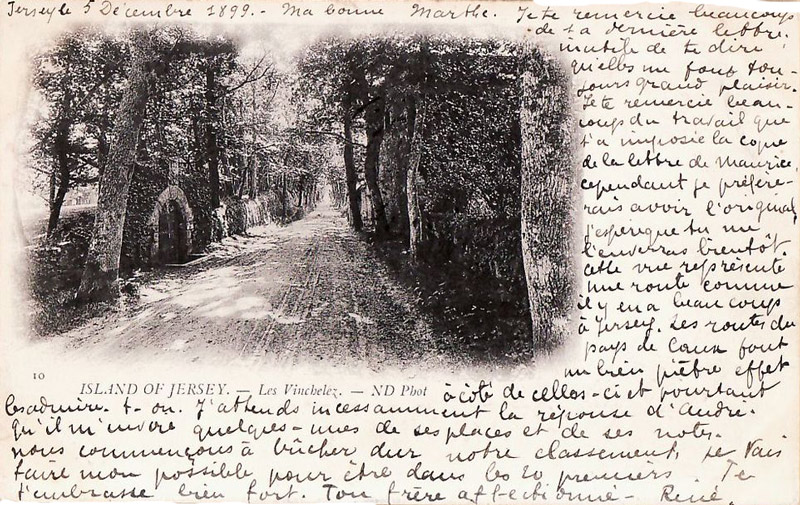 Jersey le 5 Décembre 1899. - Ma bonne Marthe. Je te remercie beaucoup
de ta dernière lettre.
inutile de te dire
qu'elles me font tou-
jours grand plaisir.
Je te remercie beau-
coup du travail que
t'a imposée la copie
de la lettre de Maurice,
cependant je préfère-
rais avoir l'original,
j'espère que tu me
l'enverras bientôt.
Cette vue représente
une route comme
il y en a beaucoup
à Jersey. Les routes du
pays de Caux font
un bien piètre effet
à côté de celles-ci et pourtant
les admire-t-on. J'attends incessamment la réponse d'André.
Qu'il m'envoie quelques-unes de ses places et de ses notes.
nous commençons à bûcher dur notre classement, je vais
faire mon possible pour être dans les 20 premiers. Je
t'embrasse bien fort. Ton frère affectionné - René.
10
ISLAND OF JERSEY. — Les Vinchelez. — ND Phot